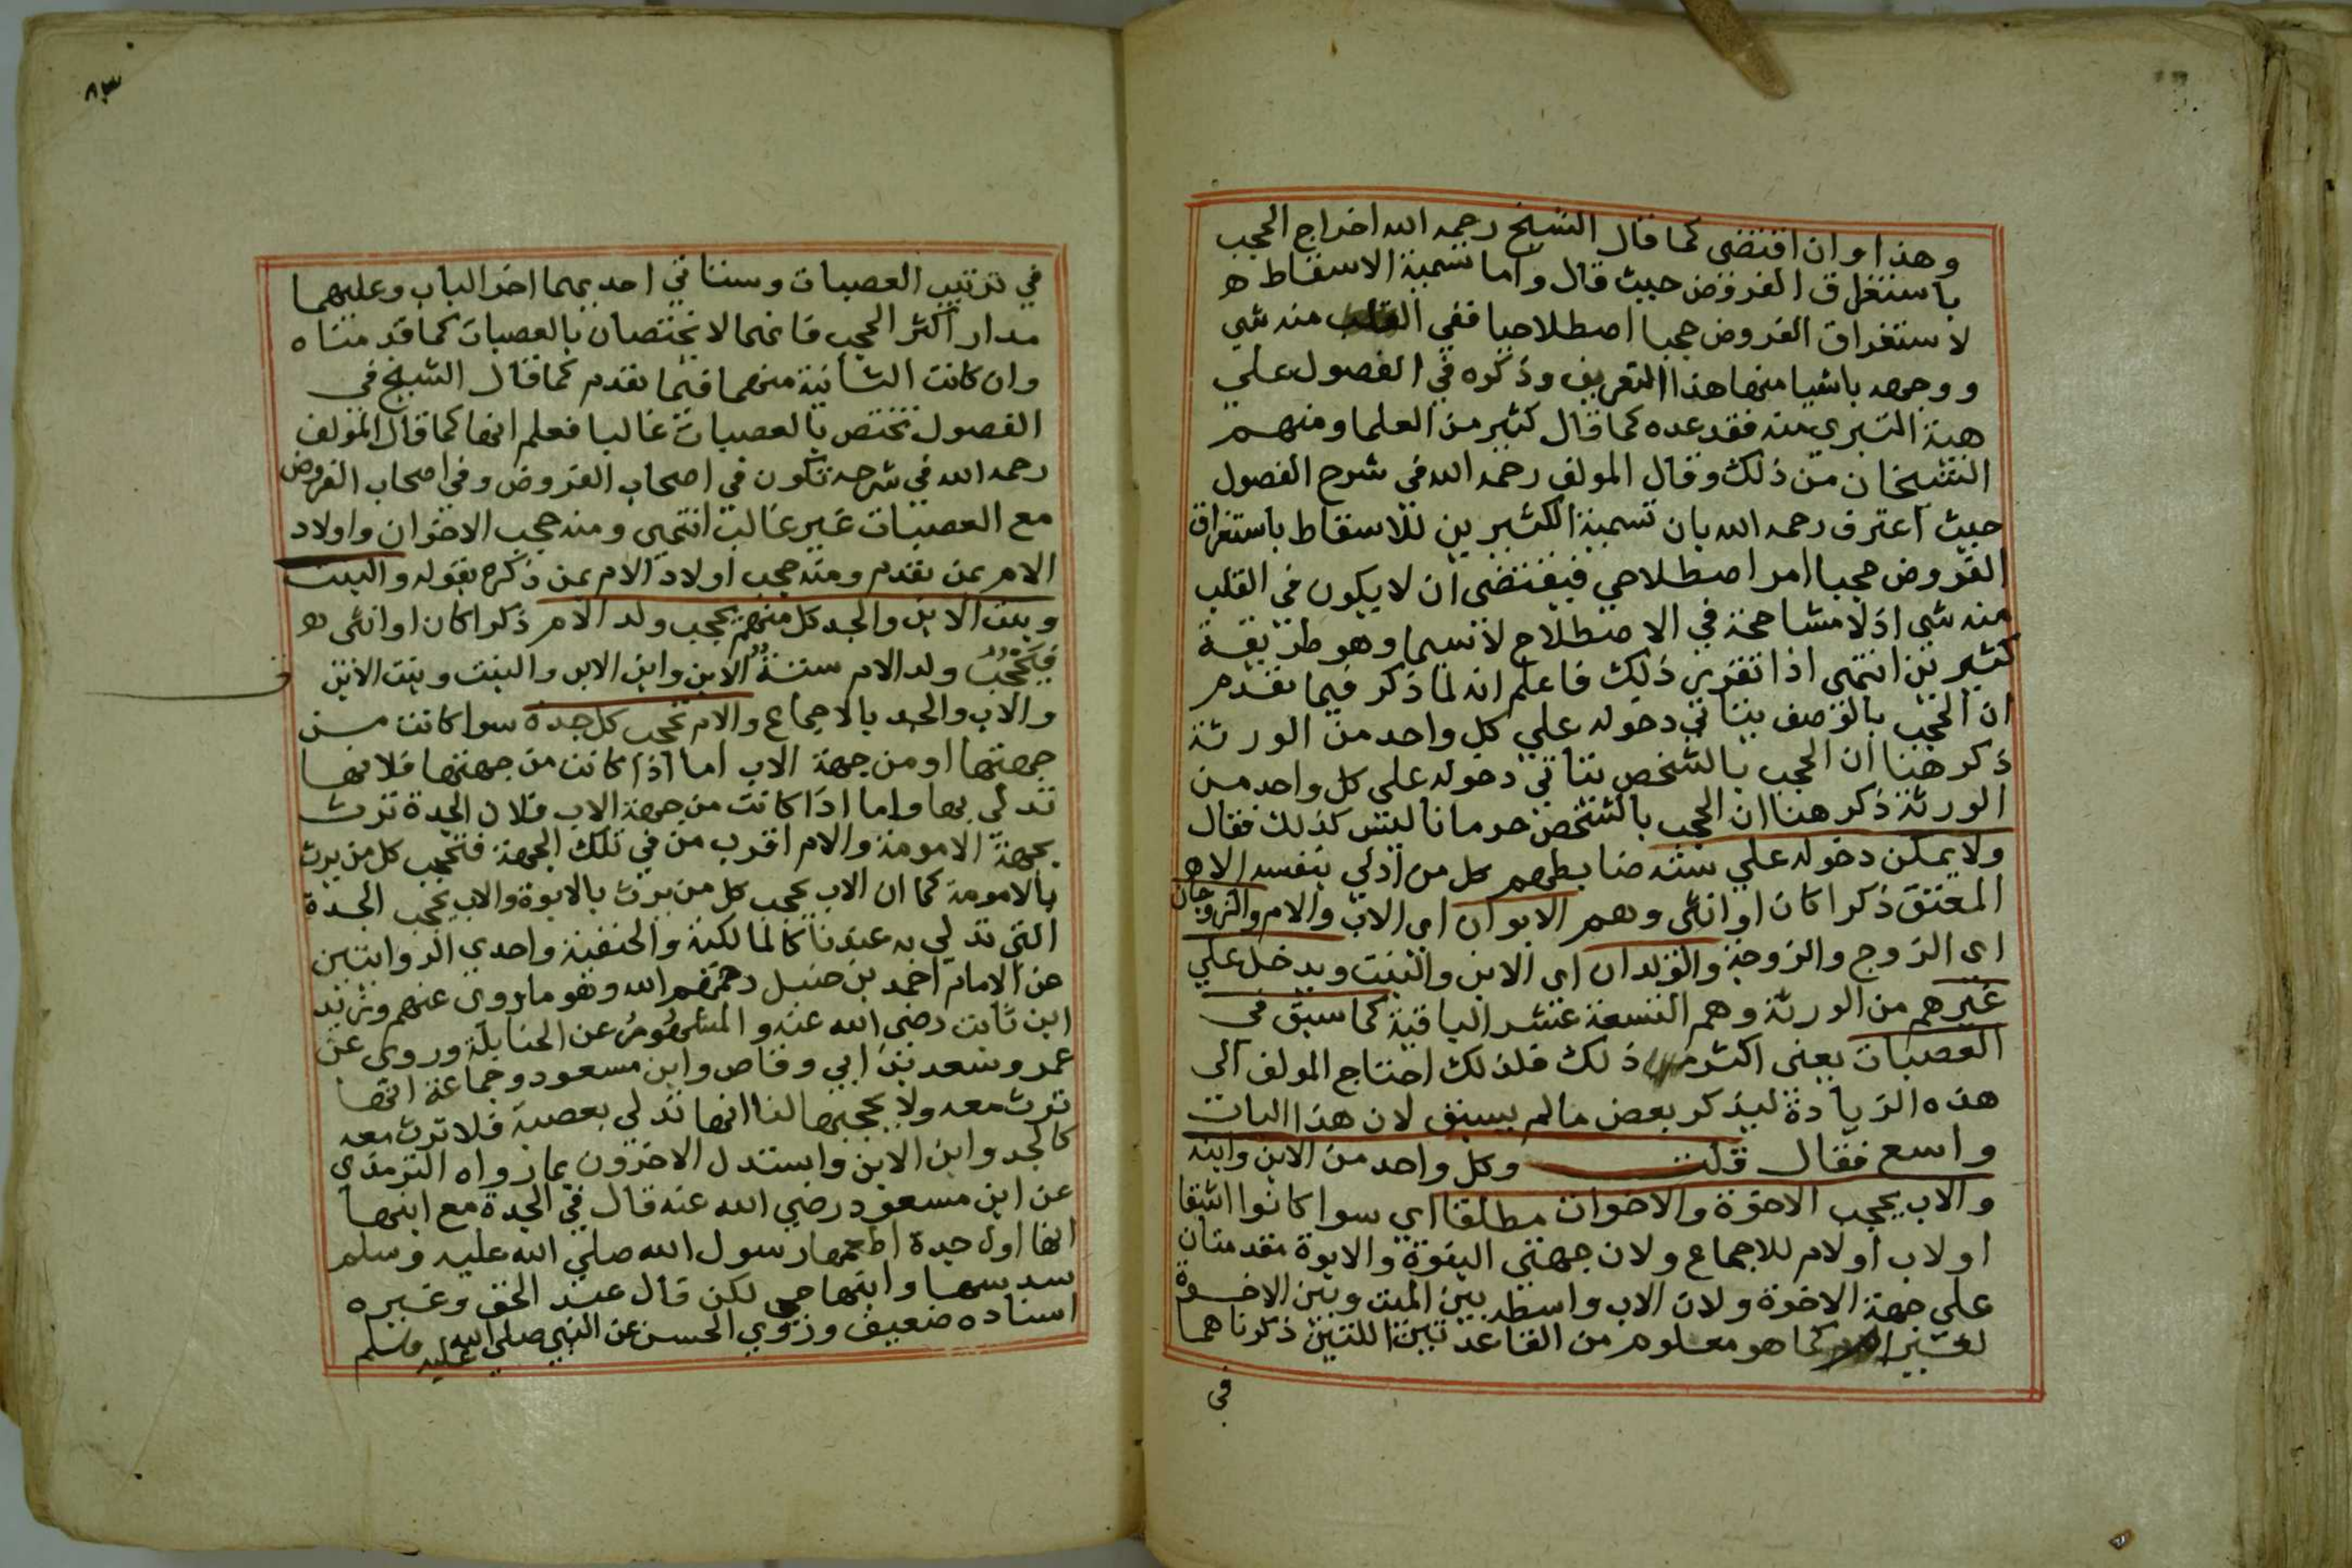 وهذا وان اقتضى كما قال الشيخ رحمه الله اخراج الحجب
باستغراق الفروض حيث قال واما تسمية الاسقاط ه
لاستغراق الفروض حجبا اصطلاحيا ففي القلب منه شي
ووجهه باشيا منها هذا التعريف وذكره في الفصول علي
هية التبري منه فقد عده كما قال كثير من العلما ومنهم
الشيخان من ذلك وقال المولف رحمه الله في شرح الفصول
حيث اعترف رحمه الله بان تسمية الكثيرين للاسقاط باستغراق
الفروض حجبا امر اصطلاحي فيقتضى ان لا يكون في القلب
منه شي اذ لا مشاححة في الاصطلاح لا سيما وهو طريقة
كثيرين انتهى اذا تقرر ذلك فاعلم انه لما ذكر فيما تقدم
ان الحجب بالوصف يتاتي دخوله علي كل واحد من الورثة
ذكر هنا ان الحجب بالشخص يتاتي دخوله علي كل واحد من
الورثة ذكر هنا ان الحجب بالشخص حرمانا ليس كذلك فقال
ولا يمكن دخوله علي ستة ضابطهم كل من ادلي بنفسه الا ه
المعتق ذكرا كان او انثى وهم الابوان اى الاب والام والزوجان
اى الزوج والزوجة والولدان اى الابن والبنت ويدخل علي
غيرهم من الورثة وهم التسعة عشر الباقية كما سبق في
العصبات يعنى اكثر ذلك فلذلك احتاج المولف الى
هذه الزيادة ليذكر بعض مالم يسبق لان هذا الباب
واسع فقال قلت وكل واحد من الابن وابنه
والاب يحجب الاخوة والاخوات مطلقا اي سوا كانوا اشقا
او لاب او لام للاجماع ولان جهتي البنوة والابوة مقدمتان
علي جهة الاخوة ولان الاب واسطة بين الميت وبين الاخوة
لغير كما هو معلوم من القاعدتين اللتين ذكرناهما
في
٨٣
في ترتيب العصبات وستاتي احديهما اخر الباب وعليهما
مدار اكثر الحجب فانهما لا يختصان بالعصبات كما قدمناه
وان كانت الثانية منهما فيما تقدم كما قال الشيخ في
الفصول تختص بالعصبات غالبا فعلم انها كما قال المولف
رحمه الله في شرحه تكون في اصحاب الفروض وفي اصحاب الفروض
مع العصبات غير غالب انتهى ومنه حجب الاخوان واولاد
الام بمن تقدم ومنه حجب اولاد الام بمن ذكره بقوله والبنت
وبنت الابن والجد كل منهم يحجب ولد الام ذكرا كان او انثى ه
فيحجب ولد الام ستة الابن وابن الابن والبنت وبنت الابن
والاب والجد بالاجماع والام تحجب كل جدة سوا كانت من
جهتها او من جهة الاب اما اذا كانت من جهتها فلانها
تدلي بها واما اذا كانت من جهة الاب فلان الجدة ترث
بجهة الامومة والام اقرب من في تلك الجهة فتحجب كل من يرث
بالامومة كما ان الاب يحجب كل من يرث بالابوة والاب يحجب الجدة
التي تدلي به عندنا كالمالكية والحنفية واحدي الروايتين
عن الامام احمد بن حنبل رحمهم الله وهو ما روى عنهم وزيد
ابن ثابت رضي الله عنه و المشهور عن الحنابلة وروى عن
عمر وسعد بن ابي وقاص وابن مسعود وجماعة انها
ترث معه ولا يحجبها لنا انها تدلي بعصبة فلا ترث معه
كالجد وابن الابن واستدل الاخرون بما رواه الترمذي
عن ابن مسعود رضي الله عنه قال في الجدة مع ابنها
انها اول جدة اطعمها رسول الله صلي الله عليه وسلم
سدسها وابنها حي لكن قال عبد الحق وغيره
اسناده ضعيف وروي الحسن عن النبي صلي الله عليه وسلم